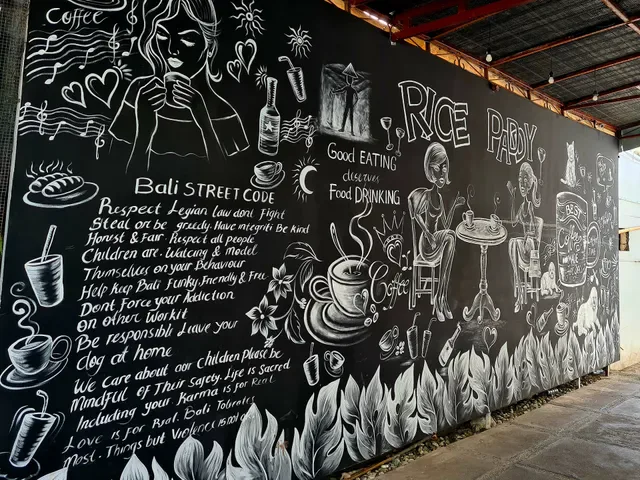 Coffee
RICE PADDY
Good EATING
deserves
Food DRINKING
Bali STREET CODE
Respect Legian law dont Fight
Steal or be greedy. Have integriti Be Kind
Honest & Fair. Respect all people
Children are. Watcing & model
Themselves on your Behaviour
Help Keep Bali Funky, Friendly & Free
Dont Force your Addiction
On other Work it
Be responsible Leave your
dog at home
We care about our children Please be
mindful of Their Safety. Life is Sacred
Including your Karma is for Real
Love is for Real. Bali Tolerates
Most. Things but Violence is not
Coffee
BEST
Coffee